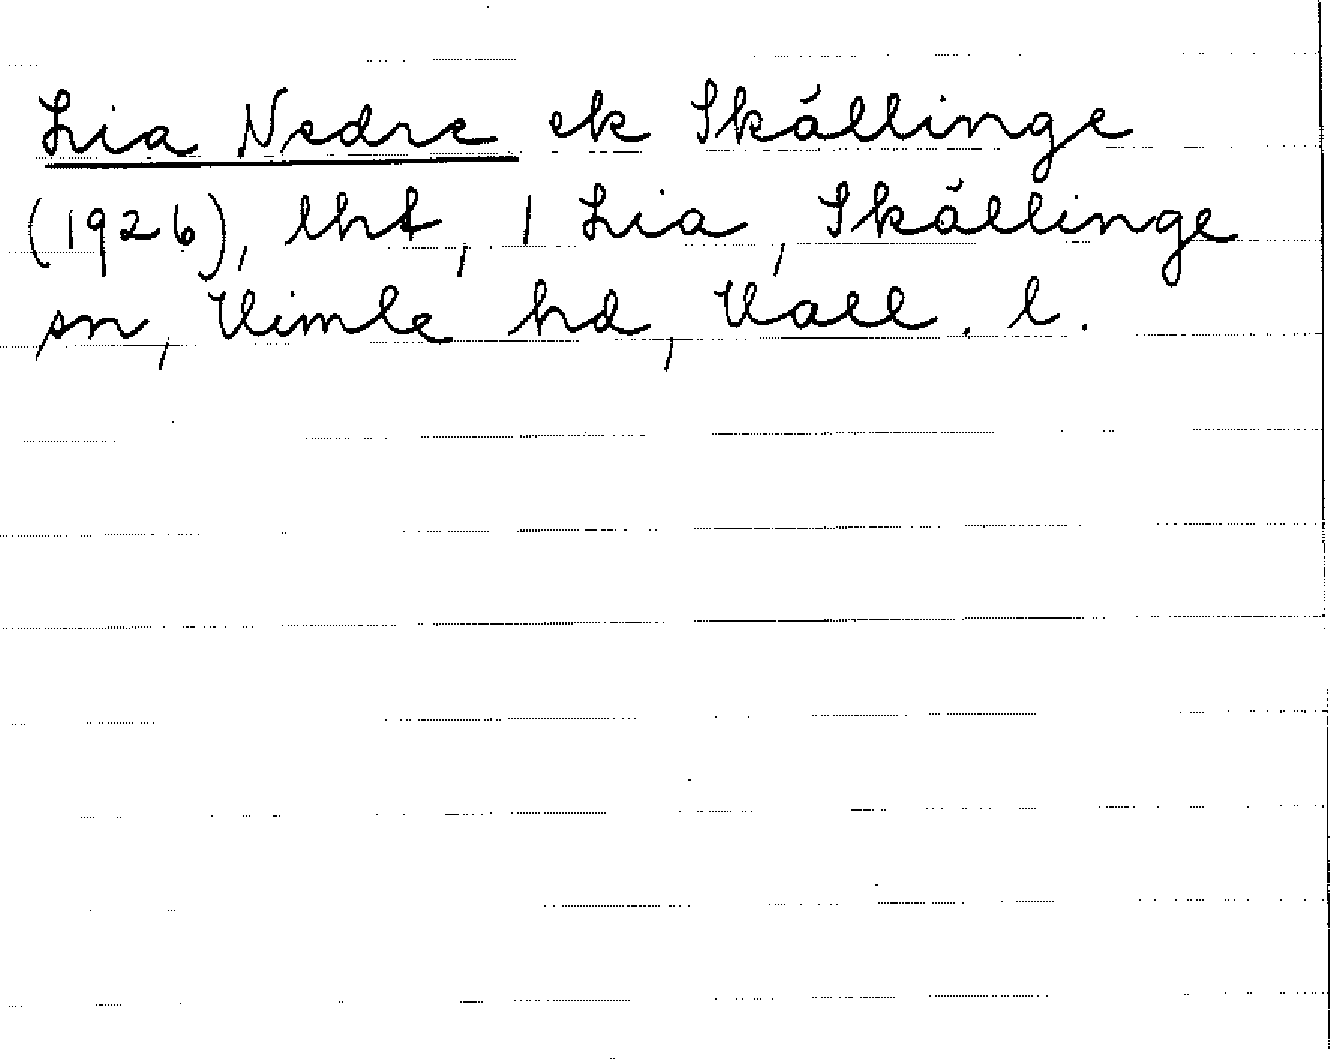 Lia Nedre ek Skällinge
(1926), lht, 1 Lia, Skällinge
sn, Vimle hd, Vall. l.